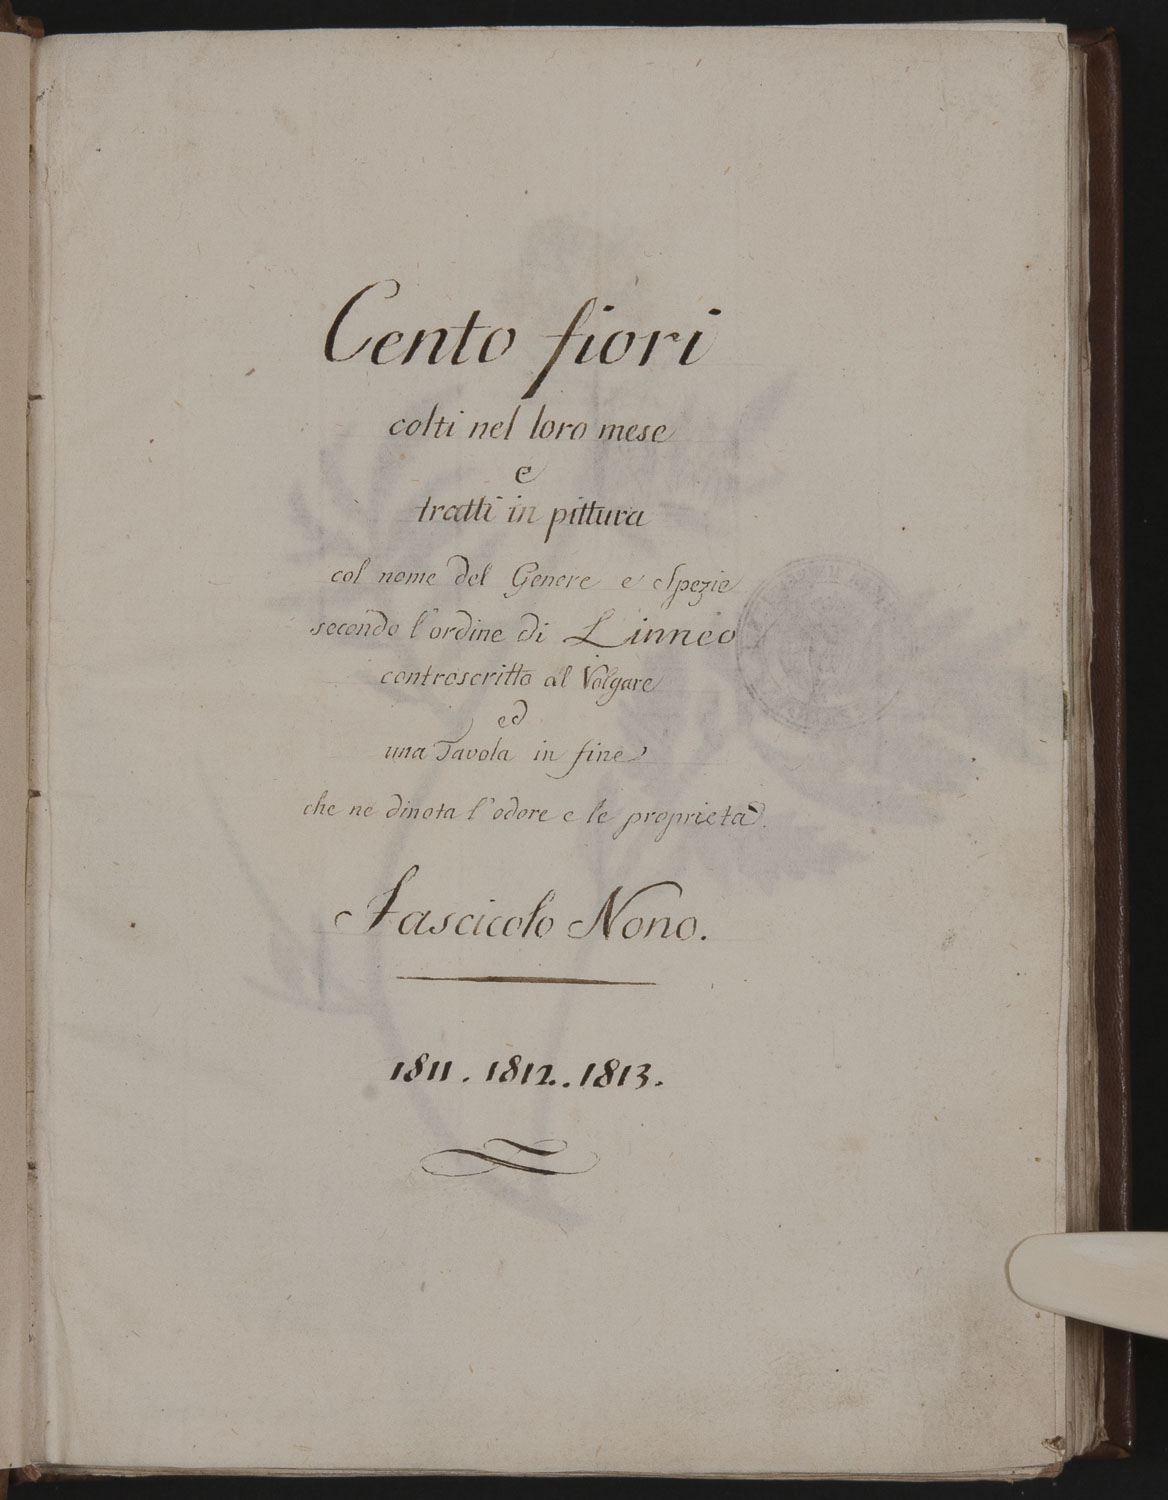 Cento fiori
colti nel loro mese
e
tratti in pittura
col nome del Genere e Spezie
secondo l'ordine di Linneo
controscritto al Volgare
ed
una Tavola in fine
che ne dinota l'odore e le proprietà.
Fascicolo Nono.
1811. 1812. 1813.